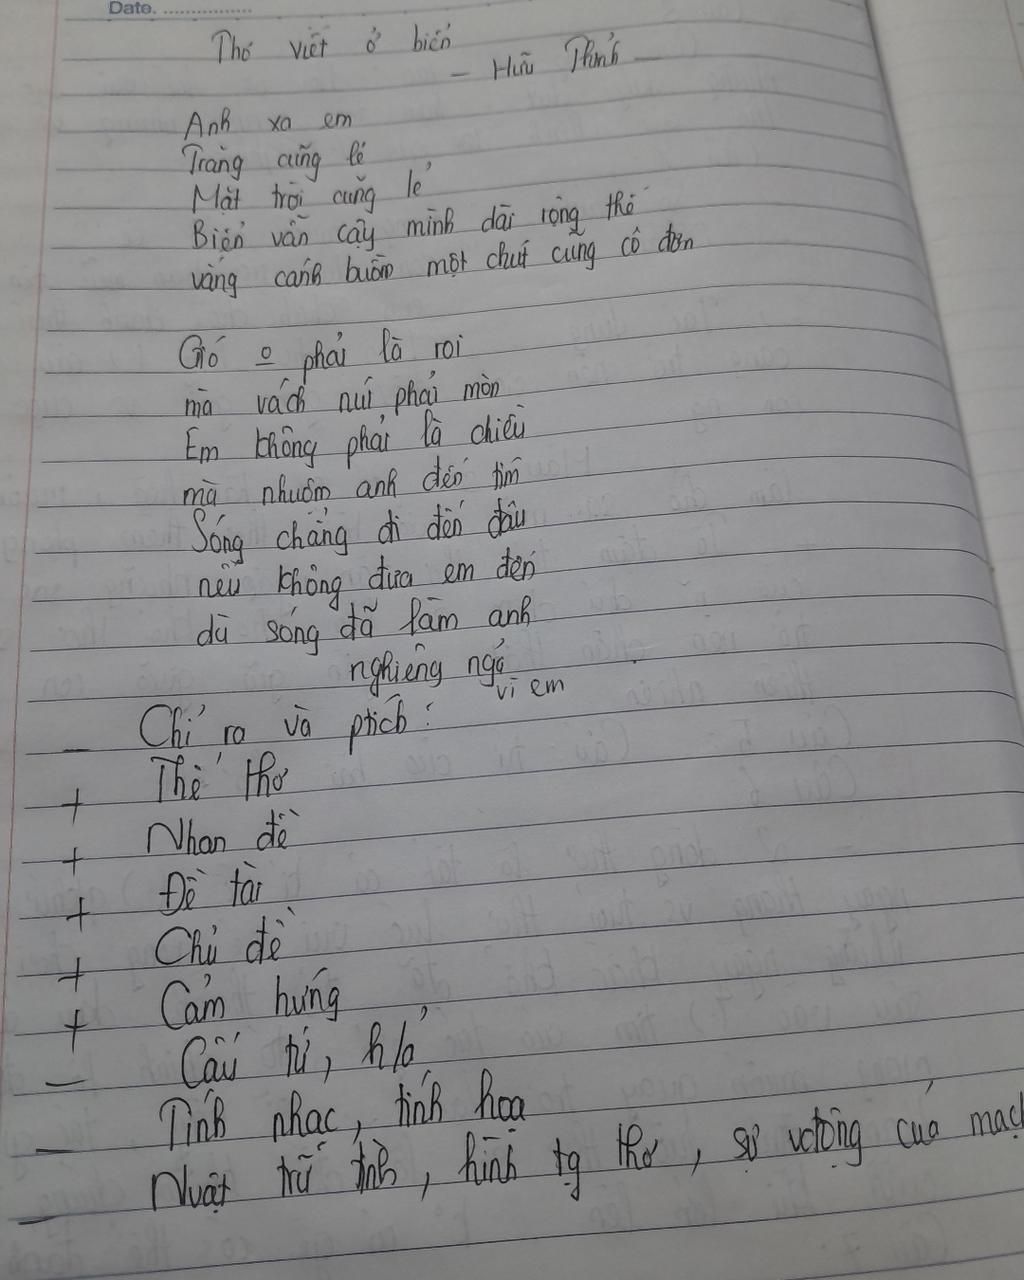 Date. ................
Thơ viết ở biển
– Hữu Thỉnh –
Anh xa em
Trăng cũng lẻ
Mặt trời cũng lẻ
Biển vẫn cậy mình dài rộng thế
vắng cánh buồm một chút cũng cô đơn
Gió o phải là roi
mà vách núi phải mòn
Em không phải là chiều
mà nhuộm anh đến tím
Sóng chẳng đi đến đâu
nếu không đưa em đến
dù sóng đã làm anh
nghiêng ngả
vì em
– Chỉ ra và ptích :
+ Thể thơ
+ Nhan đề
+ Đề tài
+ Chủ đề
+ Cảm hứng
– Cấu tứ, h/ả
– Tính nhạc, tính họa
– Nvật trữ tình, hình tg thơ, sự vđộng của mạch